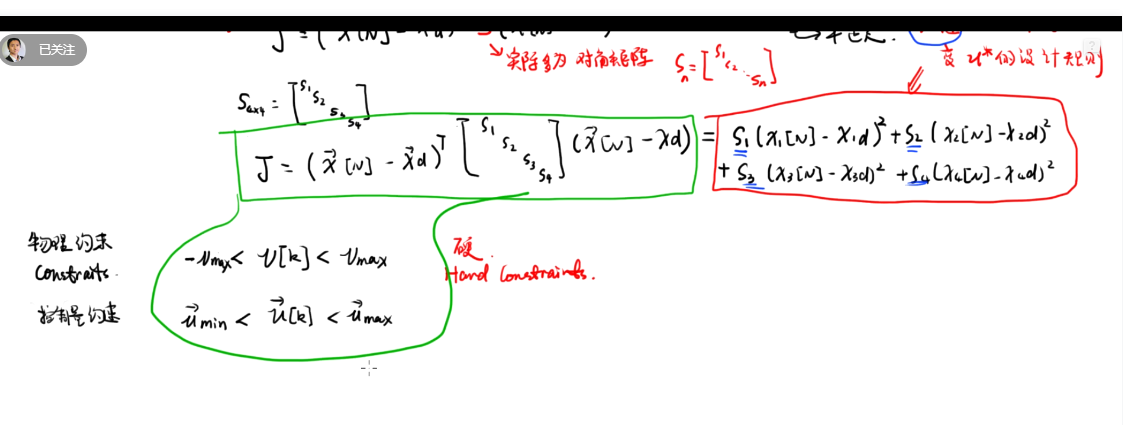 已关注
J = (x[N] - xd)
实际多为 对角矩阵 Sₙ = [S₁ S₂ ... Sₙ]
变 u* 的设计规则
S₄ₓ₄ = [S₁ S₂ S₃ S₄]
J = (x⃗[N] - x⃗d)ᵀ [S₁ S₂ S₃ S₄] (x⃗[N] - xd) = S₁(x₁[N] - x₁d)² + S₂(x₂[N] - x₂d)²
+ S₃(x₃[N] - x₃d)² + S₄(x₄[N] - x₄d)²
物理约束
Constraits.
-vmax < v[k] < vmax
硬.
Hard Constraints.
控制量约束
u⃗min < u⃗[k] < u⃗max